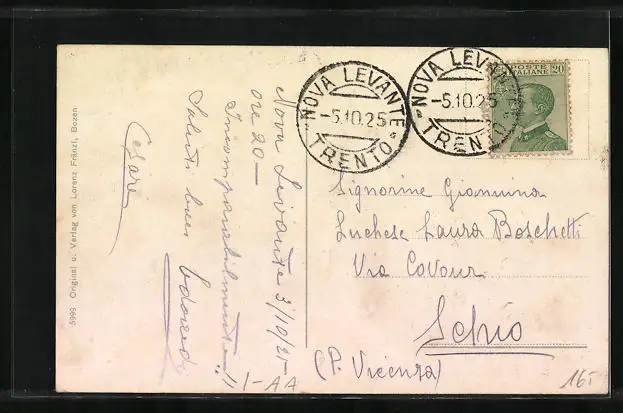 NOVA LEVANTE
-5.10.25
TRENTO
NOVA LEVANTE
-5.10.25
TRENTO
POSTE ITALIANE 20
Nova Levante 3/10/25
ore 20-
Incomparabilmente!!
Saluti baci Edoardo
Cesare
I-AA
Signorine Giannina
Zuchese Laura Boschetti
Via Cavour
Schio
(P. Vicenza)
5995 Original u. Verlag von Lorenz Fränzl, Bozen